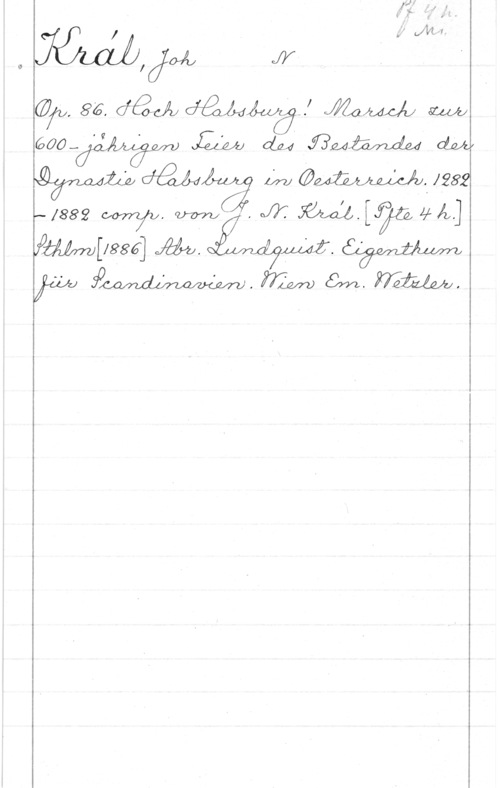 Pf 4 h.
Král, Joh N
Op. 86. Hoch Habsburg! Marsch zur
600-jåhrigen Feier des Bestandes der
Dynastie Habsburg in Oesterreich. 1282
- 1882 comp. von J. N. Král. [Pfte 4 h.]
Sthlm [1886] Abr. Lundquist. Eigenthum
für Scandinavien. Wien Em. Wetzler.